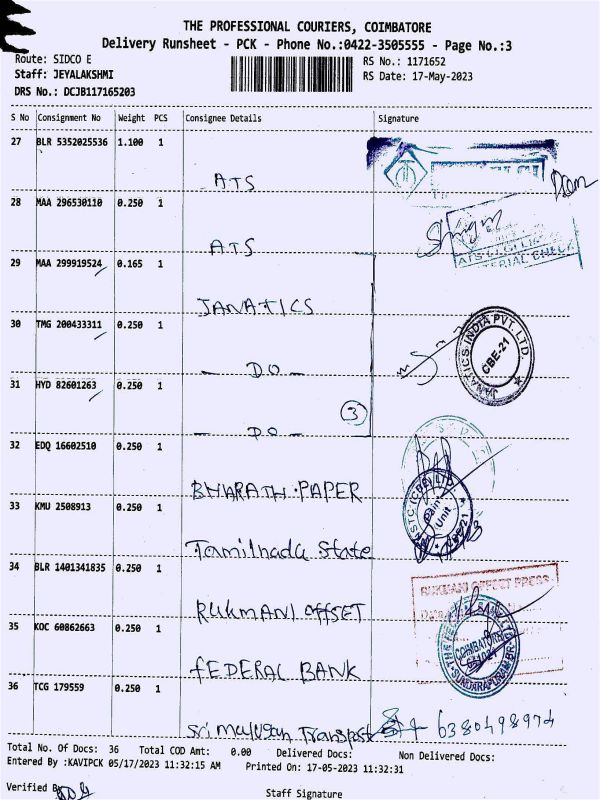 THE PROFESSIONAL COURIERS, COIMBATORE
Delivery Runsheet - PCK - Phone No.:0422-3505555 - Page No.:3
Route: SIDCO E
RS No.: 1171652
Staff: JEYALAKSHMI
RS Date: 17-May-2023
DRS No.: DCJB117165203
S No Consignment No Weight PCS Consignee Details Signature
27 BLR 5352025536 1.100 1
ATS
28 MAA 296530110 0.250 1
ATS
29 MAA 299919524 0.165 1
JANATICS
JANATICS INDIA PVT. LTD.
CBE-21
30 TMG 200433311 0.250 1
- DO -
31 HYD 82601263 0.250 1
3
- DO -
32 EDQ 16602510 0.250 1
BHARATH PAPER
33 KMU 2508913 0.250 1
Tamilnadu State
Unit
34 BLR 1401341835 0.250 1
RUKMANI OFFSET PRESS
RUKMANI OFFSET
35 KOC 60862663 0.250 1
COIMBATORE
FEDERAL BANK
36 TCG 179559 0.250 1
Sri Murugan Transport 6380498974
Total No. Of Docs: 36 Total COD Amt: 0.00 Delivered Docs: Non Delivered Docs:
Entered By :KAVIPCK 05/17/2023 11:32:15 AM Printed On: 17-05-2023 11:32:31
Verified By
Staff Signature